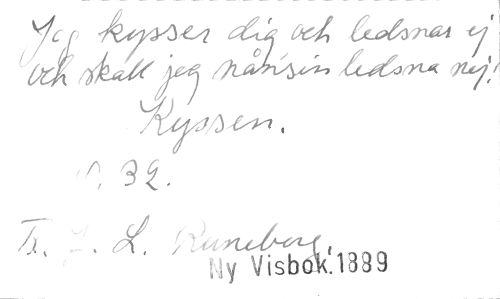 Jag kysser dig och ledsnar ej
och skall jag nånsin ledsna nej!
Kyssen.
S. 32.
Fr. J. L. Runeberg.
Ny Visbok.1889